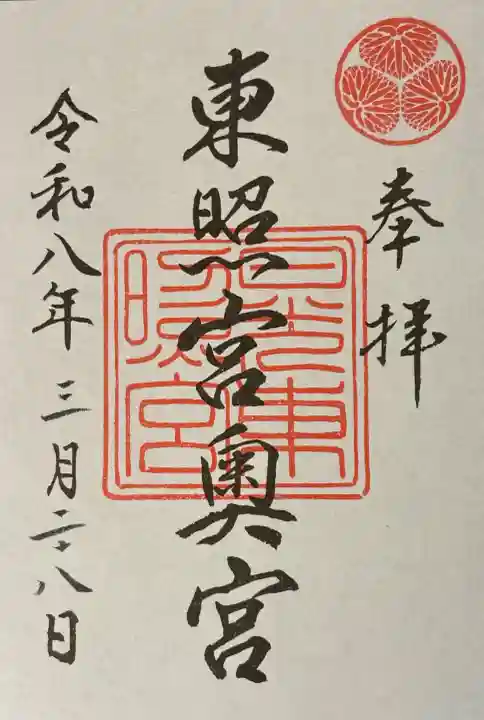 奉拝
東照宮奥宮
日光東照宮
令和八年三月二十八日